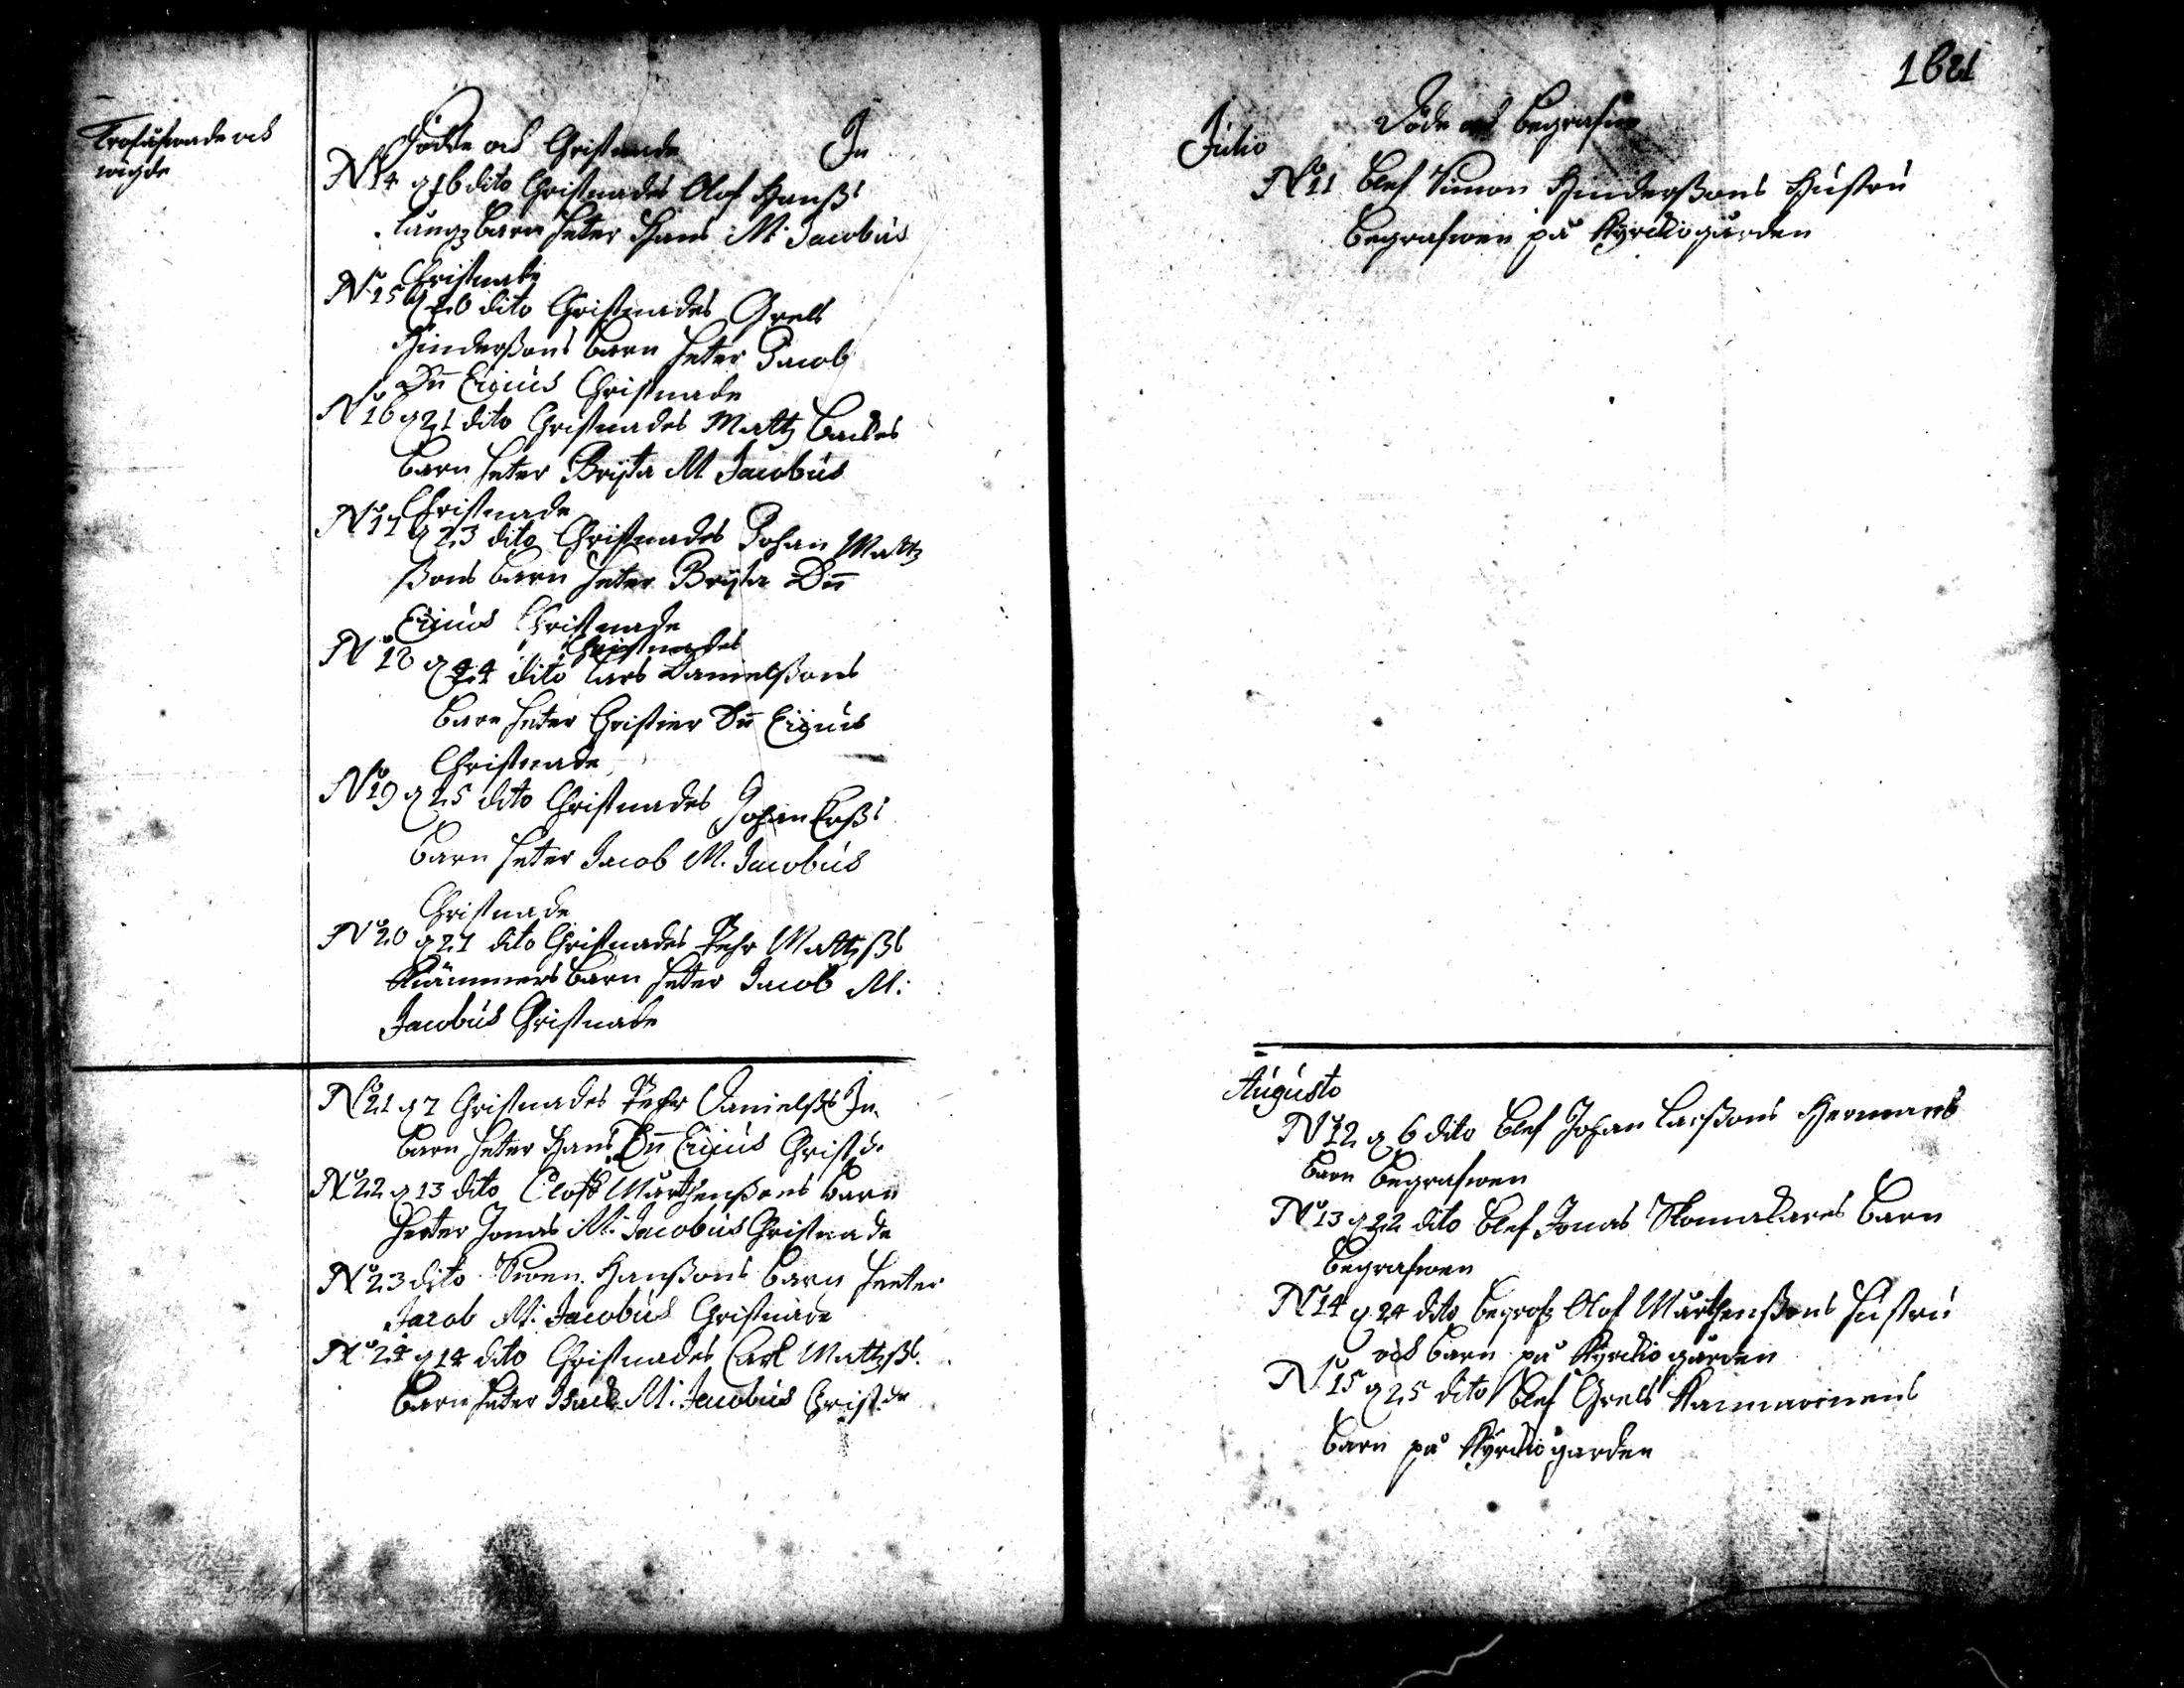 Trolåfwade och
wigde
Födde och Christnade In
N:o 14 d 16 dito Christnades Olof Hanß:s
Langz barn heter Hans M. Jacobus
Christnade
N:o 15 d 20 dito Christnades Grels
Hinderßons barn heter Jacob
Dn Eigius Christnade
N:o 16 d 21 dito Christnades Mattz Backes
barn heter Brijta M Jacobus
Christnade
N:o 17 d 23 dito Christnades Johan Mattz
ßons barn heter Brijta Dn
Eigius Christnade
Christnades
N:o 18 d 24 dito Lars Danielßons
barn heter Christier Dn Eigius
Christnade
N:o 19 d 25 dito Christnades Johan
barn heter Jacob M. Jacobus
Christnade
N:o 20 d 27 dito Christnades Pehr Mattzß:s
barn heter Jacob M:
Jacobus Christnade
N:o 21 d 7 Christnades Pehr Danielß:s In
barn heter Hans Dn Eigius Christ:de
N:o 22 d 13 dito Oloff Mårthenßons barn
heeter Jonas M: Jacobus Christnade
N:o 23 dito Swen Hanßons barn heeter
Jacob M: Jacobus Christnade
N:o 24 d 14 dito Christnades Carl Mattzß:s
barn heter Isack M: Jacobus Christ:de
1681
Julio Döde och begrafne
N:o 11 blef Simon Hinderßons Hustru
begrafwen på Kyrckiogården
Augusto
N:o 12 d 6 dito blef Johan Larßons Hermans
barn begrafwen
N:o 13 d 22 dito blef Jonas Skomakares barn
begrafwen
N:o 14 d 24 dito begrofz Olof Mårthenßons hustru
och barn på Kyrckiogården
N:o 15 d 25 dito blef Grels
barn på Kyrckiogården